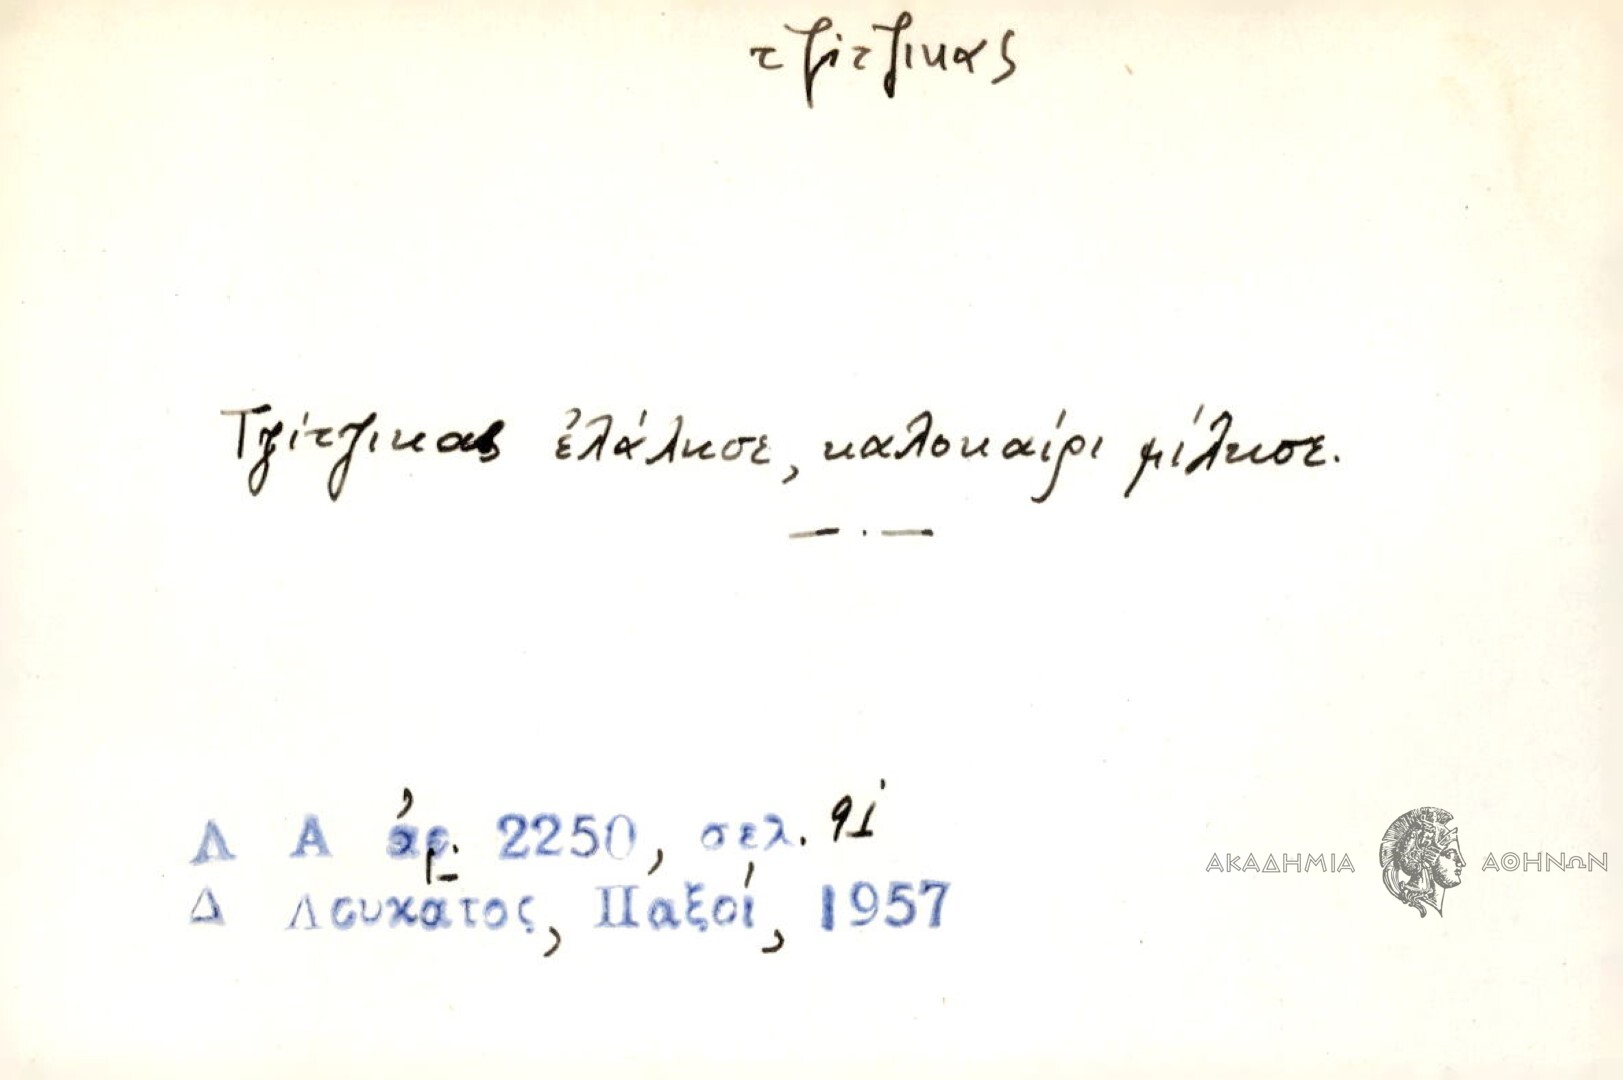 τζίτζικας
Τζίτζικας ἐλάλησε, καλοκαίρι μίλησε.
Λ Α ἀρ. 2250, σελ. 91
Δ Λουκατος, Παξοί, 1957
ΑΚΑΔΗΜΙΑ ΑΘΗΝΩΝ